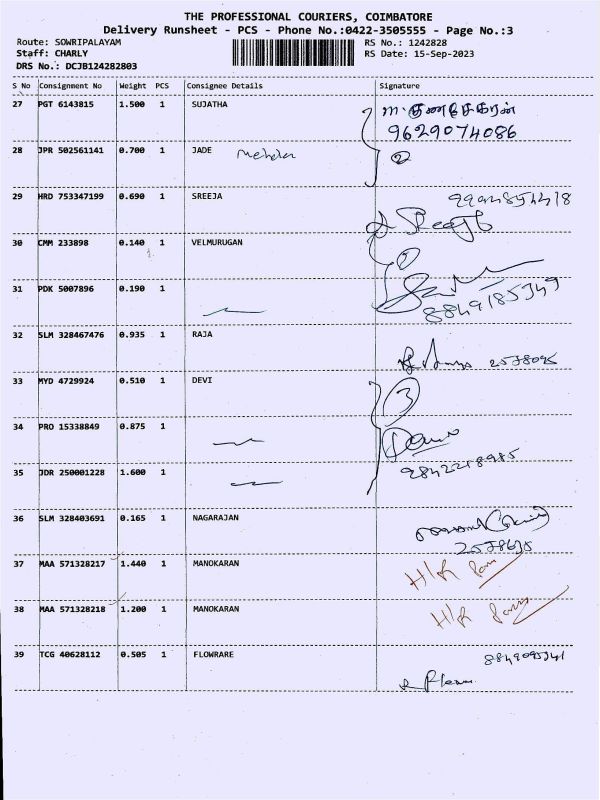 THE PROFESSIONAL COURIERS, COIMBATORE
Delivery Runsheet - PCS - Phone No.:0422-3505555 - Page No.:3
Route: SOWRIPALAYAM RS No.: 1242828
Staff: CHARLY RS Date: 15-Sep-2023
DRS No.: DCJB124282803
S No Consignment No Weight PCS Consignee Details Signature
27 PGT 6143815 1.500 1 SUJATHA
9629074086
28 JPR 502561141 0.700 1 JADE
2
29 HRD 753347199 0.690 1 SREEJA
30 CMM 233898 0.140 1 VELMURUGAN
31 PDK 5007896 0.190 1
8849185349
32 SLM 328467476 0.935 1 RAJA
33 MYD 4729924 0.510 1 DEVI
3
34 PRO 15338849 0.875 1
35 JDR 250001228 1.600 1
9842218985
36 SLM 328403691 0.165 1 NAGARAJAN
37 MAA 571328217 1.440 1 MANOKARAN
38 MAA 571328218 1.200 1 MANOKARAN
39 TCG 40628112 0.505 1 FLOWRARE